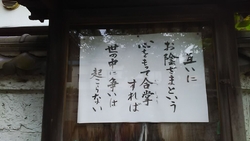 互いに
お陰さまという
心をもって合掌
すれば
世の中に争いは
起こらない